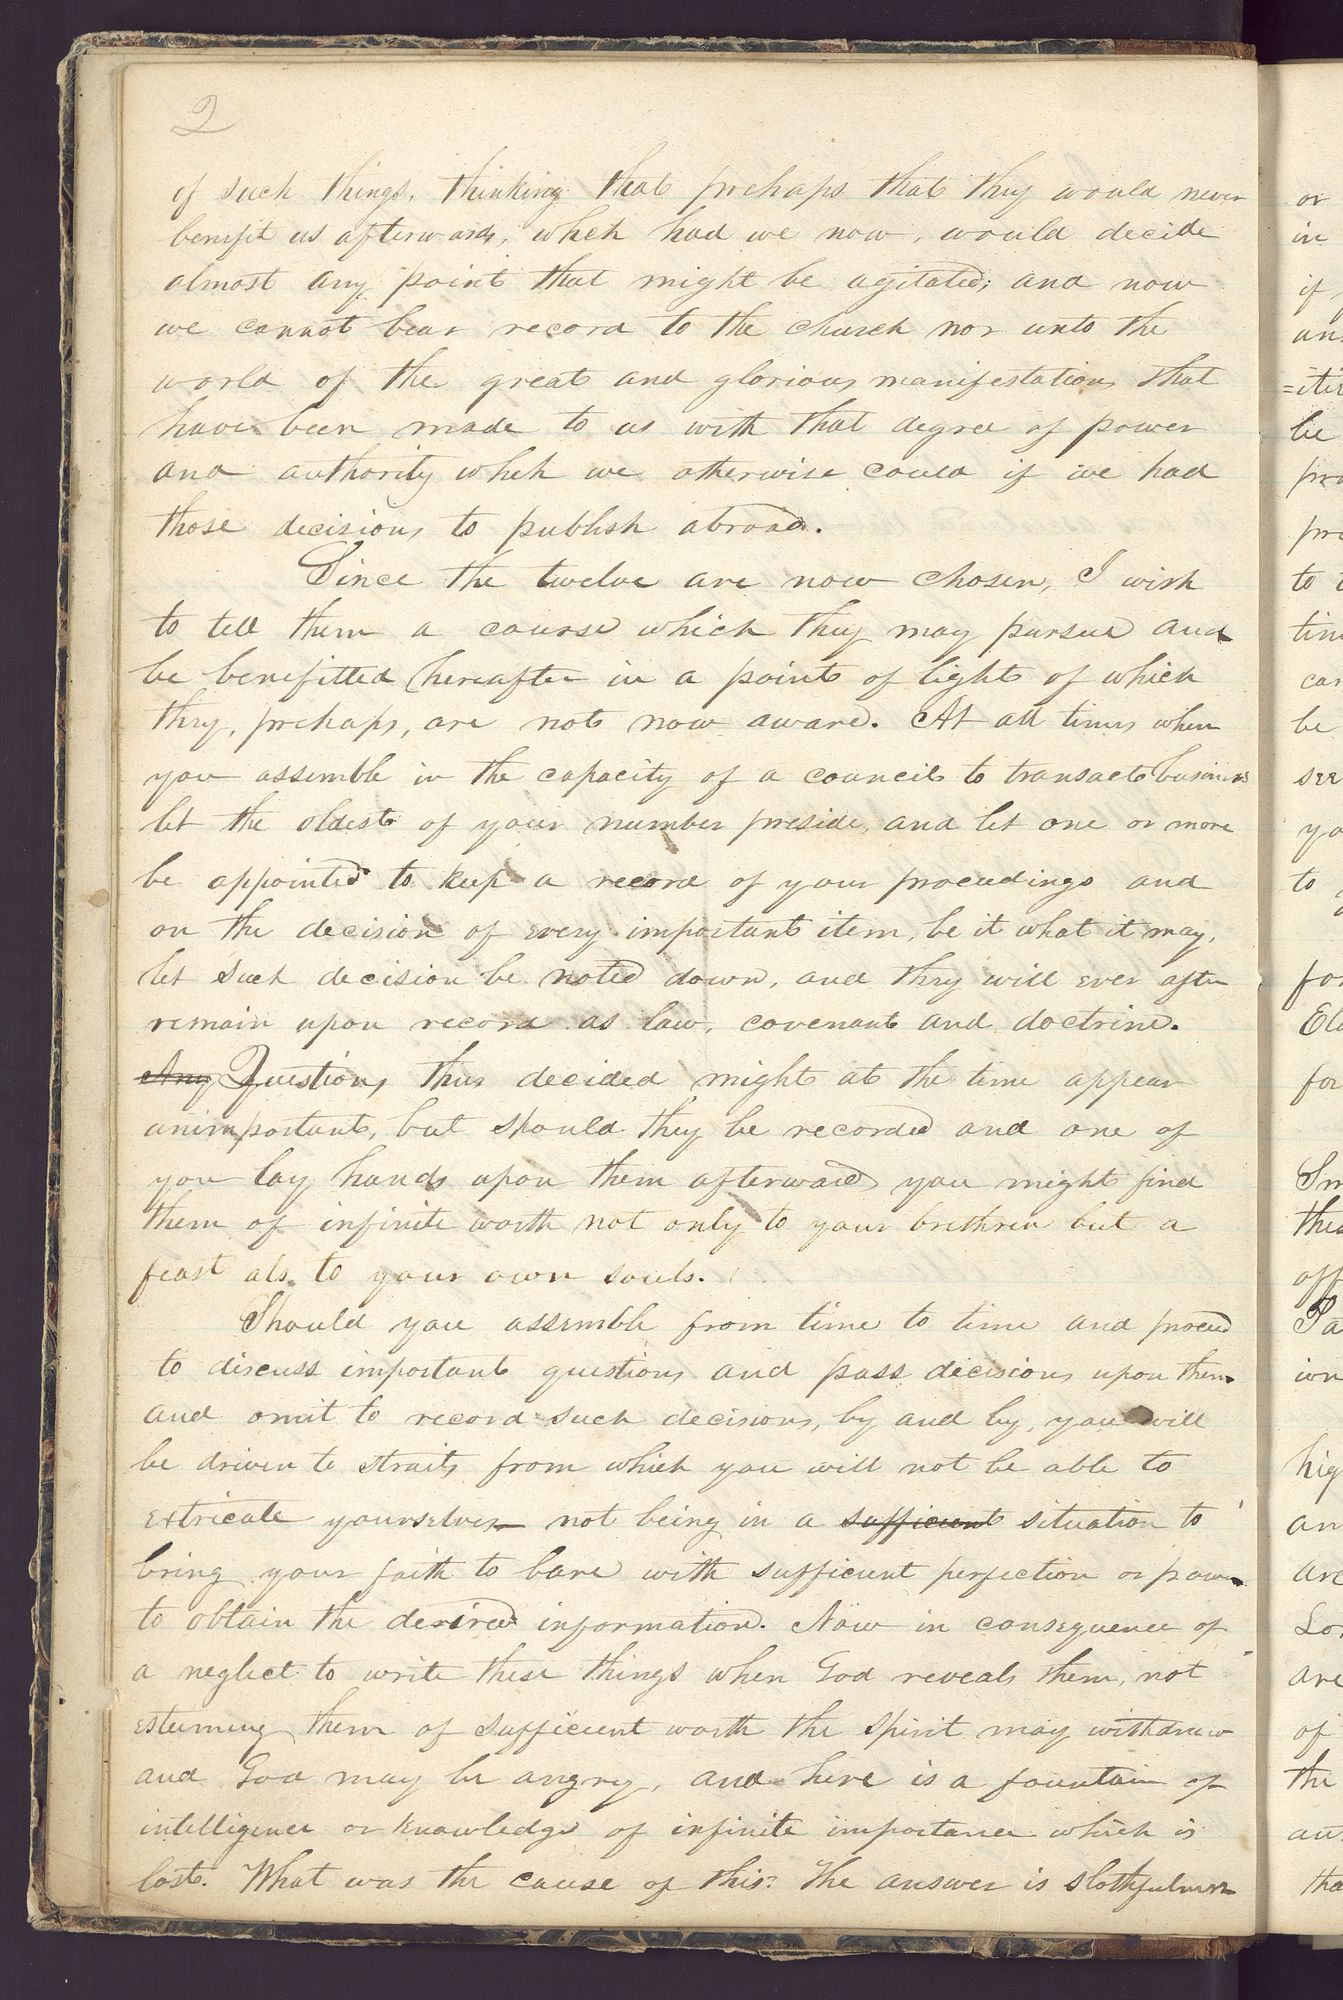 2
of such things, thinking that prehaps that they would never
benefit us afterwards, which had we now, would decide
almost any point that might be agitated; and now
we cannot bear record to the church nor unto the
world of the great and glorious manifestations that
have been made to us with that degree of power
and authority which we otherwise could if we had
those decisions to publish abroad.
Since the twelve are now chosen, I wish
to tell them a course which they may pursue and
be benefitted hereafter in a point of light of which
they, prehaps, are not now aware. At all times when
you assemble in the capacity of a council to transact business
let the oldest of your number preside, and let one or more
be appointed to keep a record of your proceedings and
on the decision of every important item, be it what it may,
let such decision be noted down, and they will ever after
remain upon record as law, covenant and doctrine.
Any Questions thus decided might at the time appear
unimportant, but should they be recorded and one of
you lay hands upon them afterward you might find
them of infinite worth not only to your brethren but a
feast also to your own souls.
Should you assemble from time to time and proceed
to discuss important questions and pass decisions upon them
and omit to record such decisions, by and by, you will
be driven to straits from which you will not be able to
extricate yourselves— not being in a sufficient situation to
bring your faith to bare with sufficient perfection or power
to obtain the desired information. Now in consequence of
a neglect to write these things when God reveals them, not
esteeming them of sufficient worth the spirit may withdraw
and God may be angry, and here is a fountain of
intelligence or knowledge of infinite importance which is
lost. What was the cause of this? The answer is slothfulness
or
in
if
be
to
be
see
to
for
for
of
the